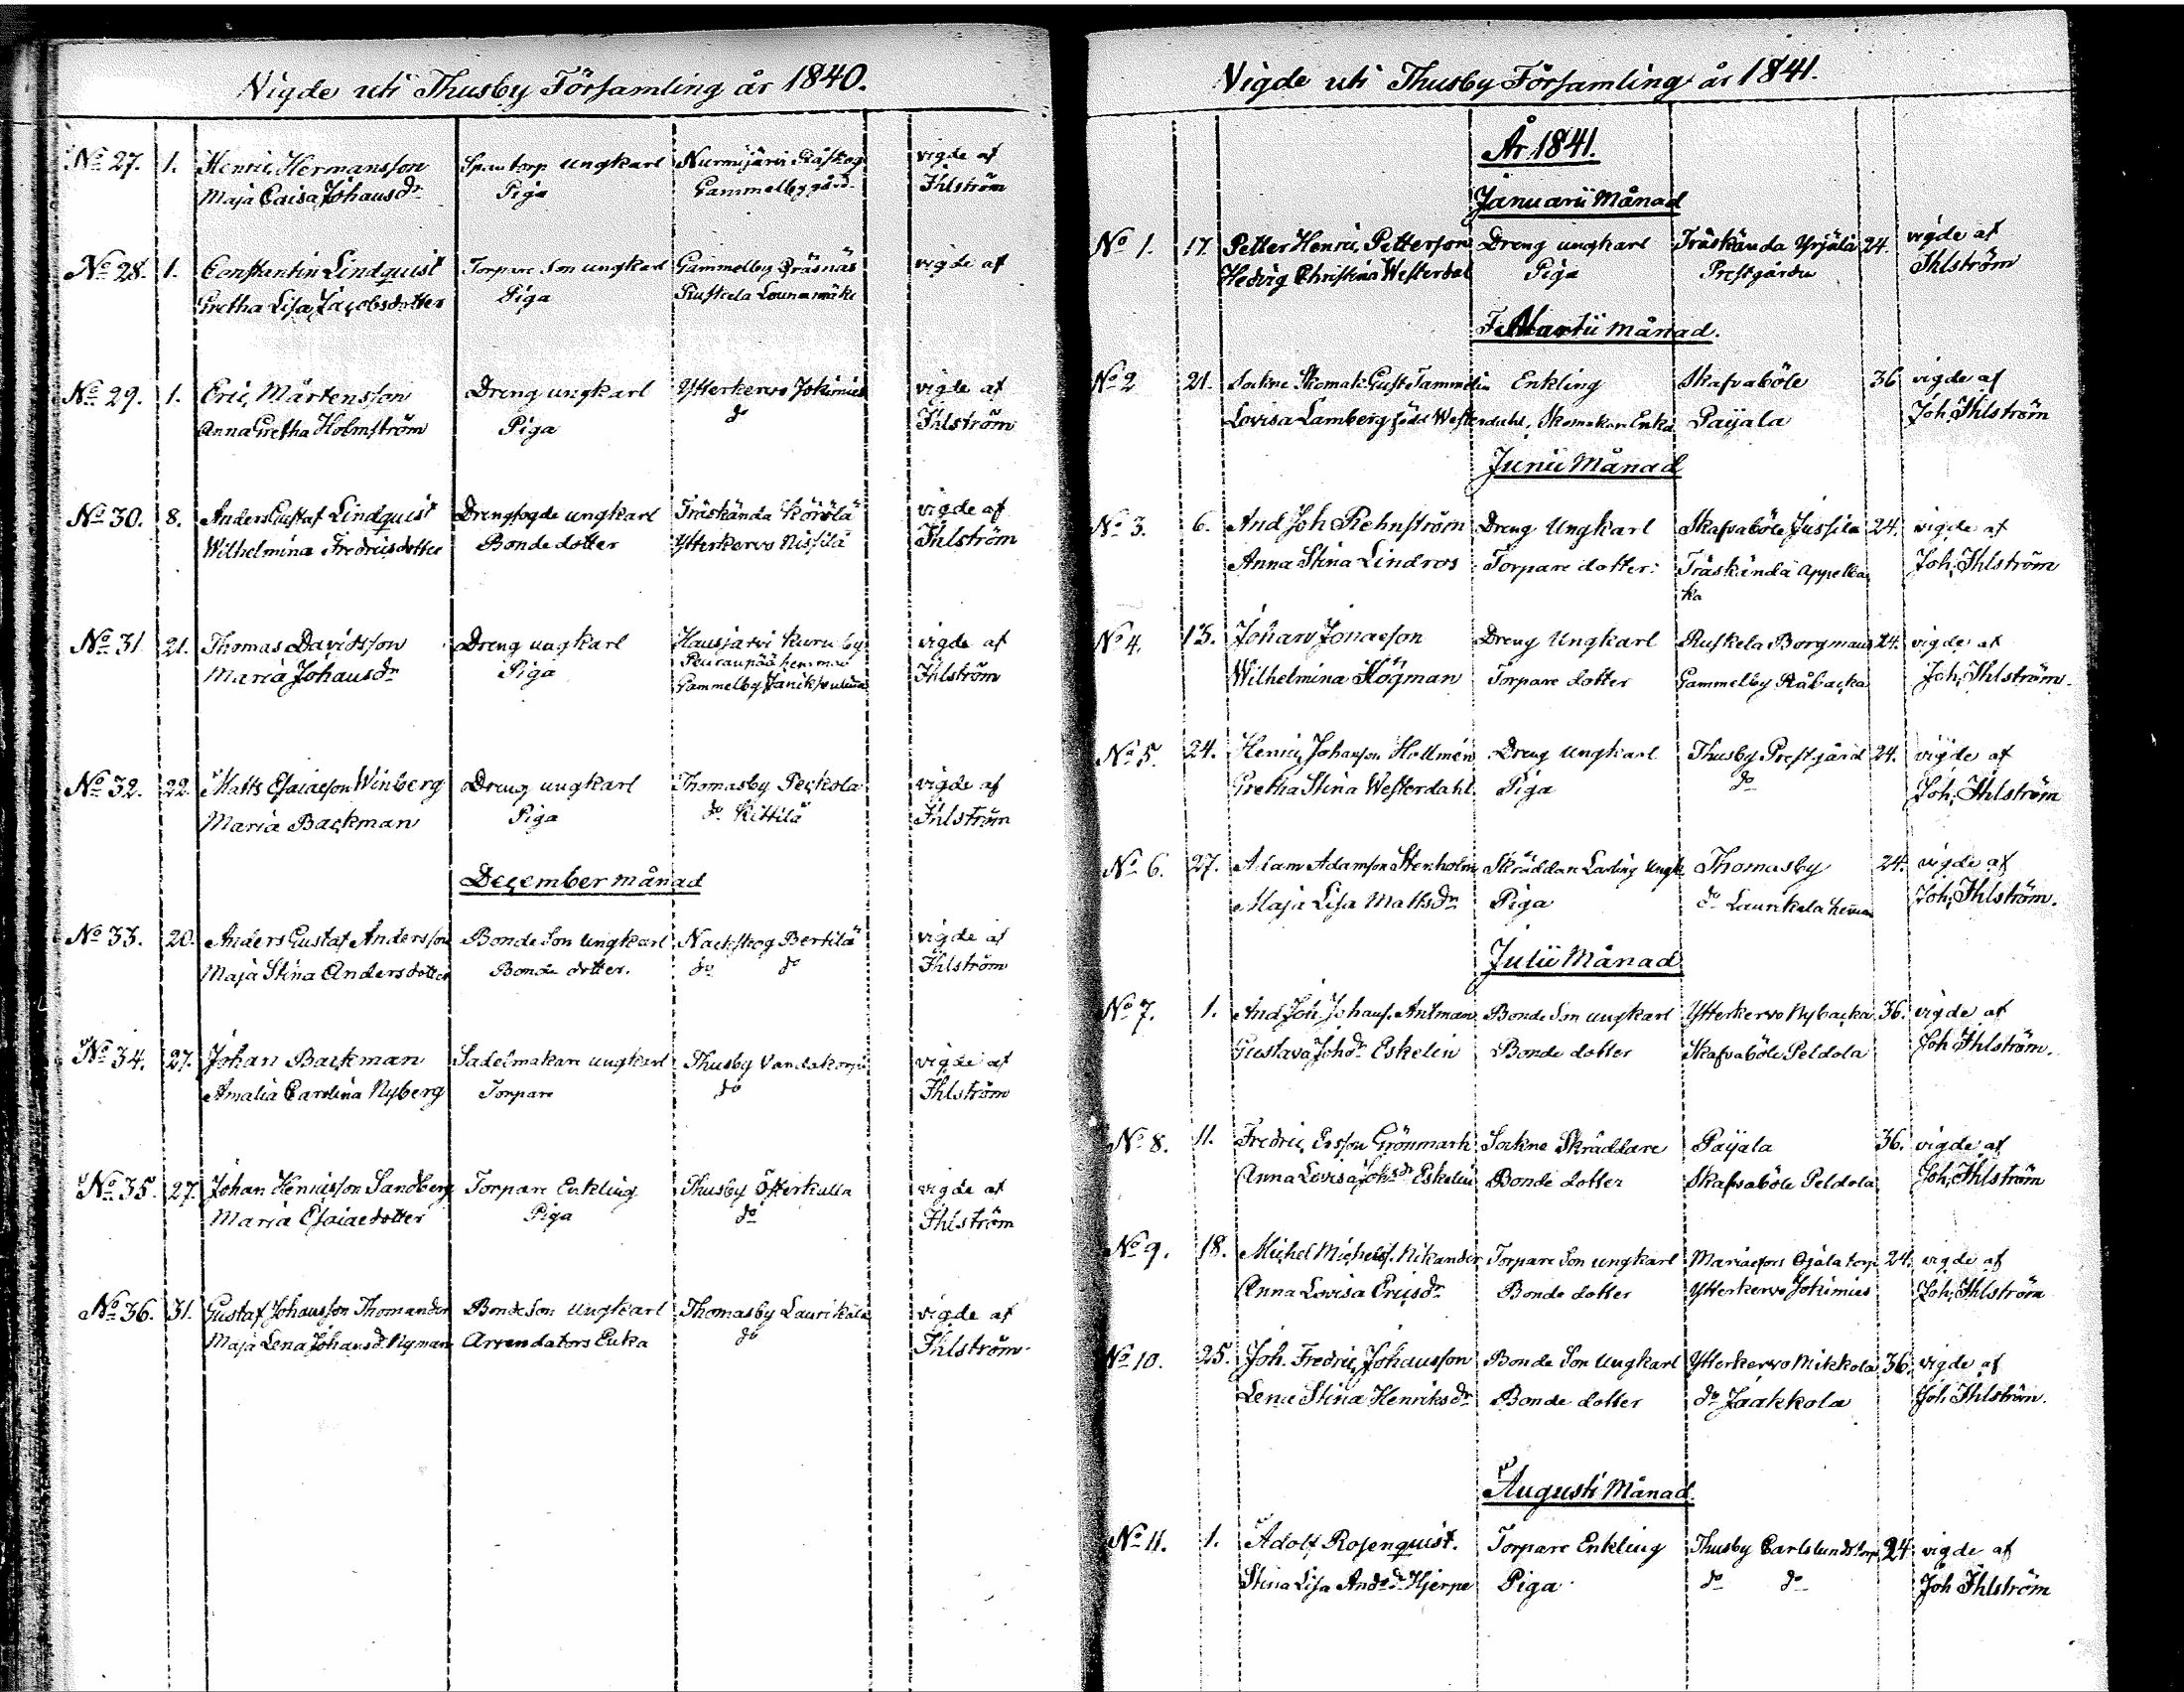 Vigde uti Thusby Församling år 1840.
No 27. 1. Henric Hermansson Spantorp ungkarl Nurmijärvi Råskog vigde af
Maja Caisa Johansdr Piga Gammelby gård Ihlström
No 28. 1. Constantin Lindquist Torpare Son ungkarl Gammelby Gräsnäs vigde af
Gretha Lisa Jacobsdotter Piga Ruskela Lounamäki
No 29. 1. Eric Mårtensson Dreng ungkarl Ytterkervo Jokimies vigde af
Anna Gretha Holmström Piga do Ihlström
No 30. 8. Anders Gustaf Lindquist Drengfogde ungkarl Träskända Körölä vigde af
Wilhelmina Fredricsdotter Bonde dotter Ytterkervo Nissilä Ihlström
No 31 21. Thomas Davidsson Dreng ungkarl Hausjärvi Kuru by vigde af
Maria Johansdr Piga Peuraupää hemman
Gammelby Ihlström
No 32. 22. Matts Esaiaeson Winberg Dreng ungkarl Thomasby Peckola vigde af
Maria Backman Piga do Kittilä Ihlström
December månad
No 33. 20. Anders Gustaf Andersson Bonde Son ungkarl Nackskog Bertilä vigde af
Maja Stina Andersdotter Bonde dotter. do do Ihlström
No 34. 27. Johan Backman Sadelmakare ungkarl Thusby Vandakorpi vigde af
Amalia Carolina Nyberg Torpare do Ihlström
No 35. 27. Johan Henricsson Sandberg Torpare Enkling Thusby Österkulla vigde af
Maria Esaiaedotter Piga do Ihlström
No 36. 31. Gustaf Johansson Thomander Bonde Son ungkarl Thomasby Laurikala vigde af
Maja Lena Johansd. Nyman Arrendators Enka do Ihlström
Vigde uti Thusby Församling år 1841.
År 1841.
Januarii Månad
No 1. 17. Petter Henric Petterson Dreng ungkarl Träskända Yrjälä 24. vigde af
Hedvig Christina Westerdal Piga Prestgården Ihlström
Martii månad.
No 2 21. Sockne Skomak Gust Tammelin Enkling Skafvaböle 36 vigde af
Lovisa Lamberg född Westerdahl, Skomakare Enka Payala Joh. Ihlström
Junii Månad
No 3. 6. And Joh Rehnström Dreng Ungkarl Skafvaböle Jussila 24. vigde af
Anna Stina Lindros Torpare dotter Träskända Appelba Joh. Ihlström
ka
No 4. 13. Johan Jonaeson Dreng Ungkarl Ruskela Borgmans 24. vigde af
Wilhelmina Högman Torpare dotter Gammelby Råbacka Joh. Ihlström.
No 5. 24. Henric Johansson Hollmén Dreng ungkarl Thusby Prestgård 24. vigde af
Gretha Stina Westerdahl. Piga do Joh. Ihlström
No 6. 27. Adam Adamson Stenholm Skräddare Lärling Ungk Thomasby 24. vigde af
Maja Lisa Mattsdr Piga do Laurikala heman Joh. Ihlström.
Julii Månad
No 7. 1. And Joh Johans. Antman Bonde Son ungkarl Ytterkervo Nybacka 36. vigde af
Gustava Johdr Eskelin Bonde dotter Skafvaböle Peldola Joh Ihlström.
No 8. 11. Fredric Ersson Grönmark Sockne Skräddare Payala 36. vigde af
Anna Lovisa Johsdr Eskelin Bonde dotter Skafvaböle Peldola Joh. Ihlström
No 9. 18. Michel Michelsf. Nikander Torpare Son ungkarl Mariaefors Ojala torp 24. vigde af
Anna Lovisa Ericsdr Bonde dotter Ytterkervo Jokimies Joh. Ihlström
No 10. 25. Joh. Fredric Johansson Bonde Son Ungkarl Ytterkervo Mikkola 36. vigde af
Lena Stina Henriksdr Bonde dotter do Jaakkola Joh. Ihlström.
Augusti Månad.
No 11. 1. Adolf Rosenquist. Torpare Enkling Thusby Carlslunds torp 24 vigde af
Stina Lisa Andsdr Hjerpe Piga do do Joh Ihlström